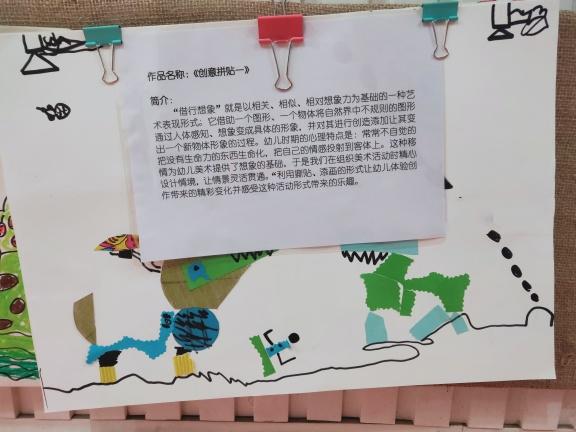 作品名称:《创意拼贴一》
简介:
“借行想象”就是以相关、相似、相对想象力为基础的一种艺
术表现形式。它借助一个图形、一个物体将自然界中不规则的图形
通过人体感知、想象变成具体的形象，并对其进行创造添加让其变
出一个新物体形象的过程。幼儿时期的心理特点是：常常不自觉的
把没有生命力的东西生命化，把自己的情感投射到客体上。这种移
情为幼儿美术提供了想象的基础。于是我们在组织美术活动时精心
设计情境，让情景灵活贯通。“利用撕贴、添画的形式让幼儿体验创
作带来的精彩变化并感受这种活动形式带来的乐趣。